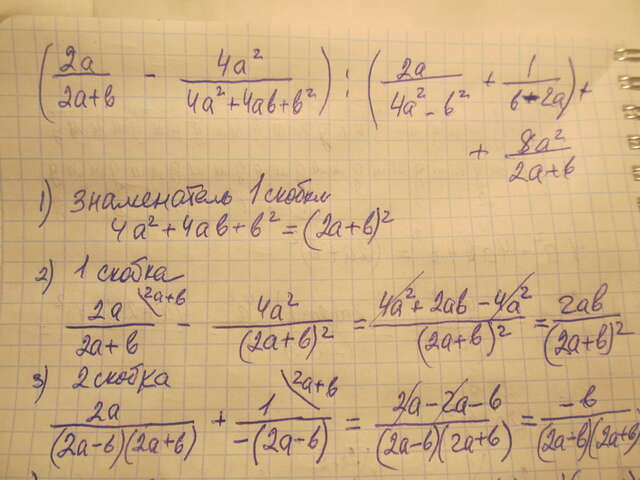 (2a/(2a+b) - 4a²/(4a²+4ab+b²)) : (2a/(4a²-b²) + 1/(b-2a)) +
+ 8a²/(2a+b)
1) Знаменатель 1 скобки
4a²+4ab+b² = (2a+b)²
2) 1 скобка
2a/(2a+b) \2a+b - 4a²/(2a+b)² = (4a²+2ab-4a²)/(2a+b)² = 2ab/(2a+b)²
3) 2 скобка
2a/((2a-b)(2a+b)) + 1/(-(2a-b)) \2a+b = (2a-2a-b)/((2a-b)(2a+b)) = -b/((2a-b)(2a+b)